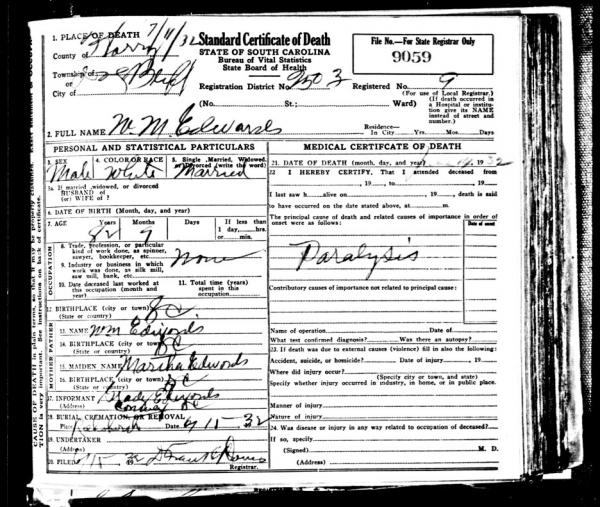 7/11/32
1. PLACE OF DEATH
County of Horry
Township of
or
City of
Standard Certificate of Death
STATE OF SOUTH CAROLINA
Bureau of Vital Statistics
State Board of Health
File No.—For State Registrar Only
9059
Registration District No. 2503 Registered No. 9
(For use of Local Registrar.)
(No. St.; Ward)
(If death occurred in a Hospital or institution give its NAME instead of street and number.)
2. FULL NAME W. M. Edwards
Residence— In City Yrs. Mos. Days
PERSONAL AND STATISTICAL PARTICULARS
3. SEX Male 4. COLOR OR RACE White 5. Single, Married, Widowed, or Divorced (write the word) Married
5a. If married, widowed, or divorced
HUSBAND of
(or) WIFE of ?
6. DATE OF BIRTH (Month, day, and year)
7. AGE Years 82 Months 7 Days If less than 1 day, hrs. or min.
OCCUPATION
8. Trade, profession, or particular kind of work done, as spinner, sawyer, bookkeeper, etc. None
9. Industry or business in which work was done, as silk mill, saw mill, bank, etc.
10. Date deceased last worked at this occupation (month and year)
11. Total time (years) spent in this occupation
12. BIRTHPLACE (city or town) S C
(State or country)
FATHER
13. NAME Wm Edwords
14. BIRTHPLACE (city or town) S C
(State or country)
MOTHER
15. MAIDEN NAME Martha Edwords
16. BIRTHPLACE (city or town) S C
(State or country)
17. INFORMANT Edwords
(Address) Conway S C
18. BURIAL, CREMATION, OR REMOVAL
Place Date 11 32
19. UNDERTAKER
(Address)
20. FILED 15 32
Registrar.
MEDICAL CERTIFICATE OF DEATH
21. DATE OF DEATH (month, day, and year) 1932
22 I HEREBY CERTIFY, That I attended deceased from
, 19 , to , 19
I last saw h alive on , 19 , death is said
to have occurred on the date stated above, at m.
The principal cause of death and related causes of importance in order of onset were as follows:
Date of onset
Paralysis
Contributory causes of importance not related to principal cause:
Name of operation Date of
What test confirmed diagnosis? Was there an autopsy?
23. If death was due to external causes (violence) fill in also the following:
Accident, suicide, or homicide? Date of injury , 19
Where did injury occur?
(Specify city or town, and state)
Specify whether injury occurred in industry, in home, or in public place.
Manner of injury
Nature of injury
24. Was disease or injury in any way related to occupation of deceased?
If so, specify
(Signed) M. D.
(Address)